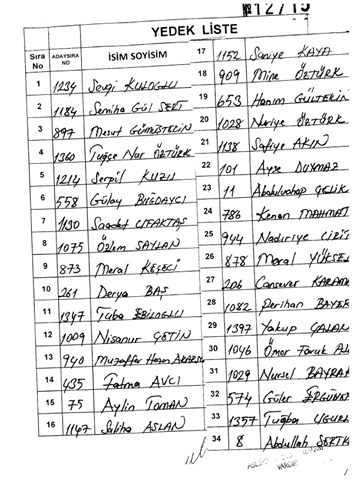 12715
YEDEK LİSTE
Sıra No ADAYSIRA NO İSİM SOYİSİM
1 1234 Sevgi KULOGLU
2 1184 Semiha Gül SERT
3 897 Mesut GÜMÜŞTEKİN
4 1360 Tuğçe Nur ÖZTÜRK
5 1214 Serpil KUZU
6 558 Gülay BUĞDAYCI
7 1130 Saadet UFAKTAŞ
8 1075 Özlem SAYLAN
9 873 Meral KEŞECİ
10 261 Derya BAŞ
11 1347 Tuba EBİLOGLU
12 1009 Nisanur ÇETİN
13 940 Muzaffer Hasan
14 435 Fatma AVCI
15 75 Aylin TOMAN
16 1147 Saliha ASLAN
17 1152 Saniye KAYA
18 909 Mine ÖZTÜRK
19 653 Hanım GÜLTEKİN
20 1028 Nuriye ÖZTÜRK
21 1138 Safiye AKIN
22 101 Ayşe DUYMAZ
23 11 Abdulvahap ÇELİK
24 786 Kenan MAHMAT
25 944 Nadiriye
26 878 Meral YÜKSEL
27 206 Cansever KARAMA
28 1082 Perihan BAYER
29 1397 Yakup
30 1046 Ömer Faruk
31 1029 Nursel BAYRA
32 574 Güler ERGÜN
33 1357 Tuğba UĞURL
34 8 Abdullah SERTK